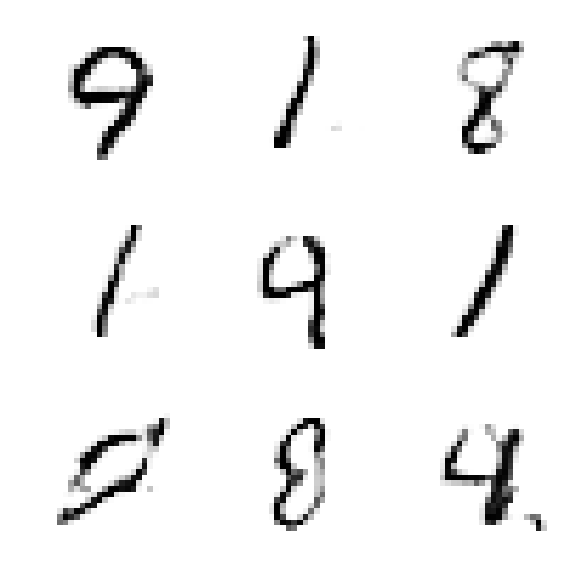 9 1 8
1 9 1
8 4